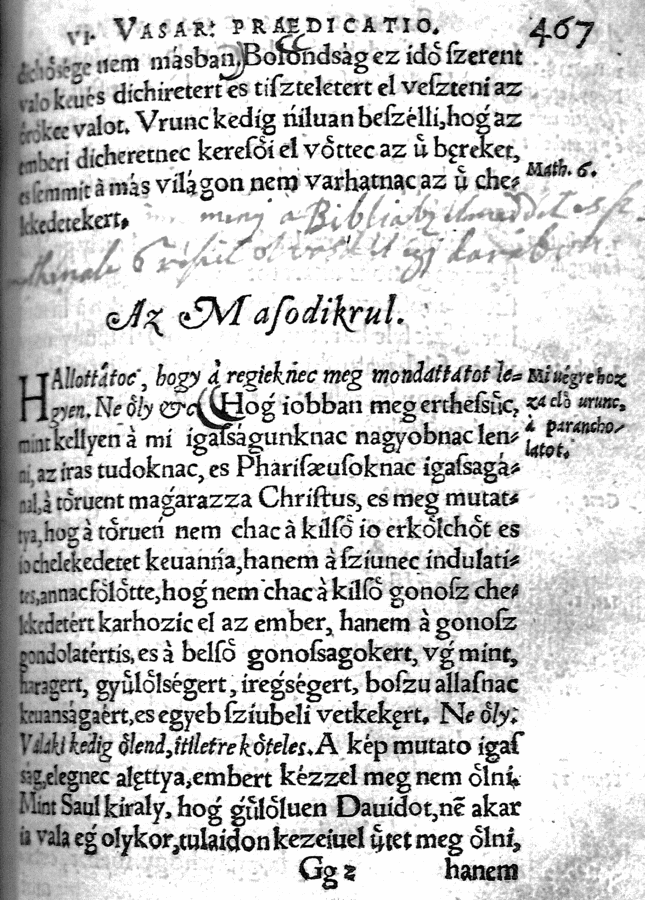 VI. VASAR: PRAEDICATIO. 467
dichősége nem másban, Bolondság ez idő ſzerent
valo keués dichiretert es tiſzteletert el veſzteni az
őrőkce valot. Vrunc kedig ńiluan beſzélli, hog az
emberi dicheretnec kereſői el vőttec az ű bęreket,
es ſemmit à más világon nem varhatnac az ű che-
lekedetekert.
Math. 6.
Az Maſodikrul.
HAllottátoc, hogy à regiekńec meg mondattatot le-
gyen. Ne őly &c. Hoǵ iobban meg ertheſsűc,
mint kellyen à mi igaſságunknac nagyobnac len-
ni, az iras tudoknac, es Phariſæuſoknac igaſsagá-
nal, à tőruent maǵarazza Chriſtus, es meg mutat-
tya, hog à tőrueń nem chac à kílſő io erkőlchőt es
io chelekedetet keuanńa, hanem à ſziunec indulati-
tes, annac főlőtte, hoǵ nem chac à kílſő gonoſz che-
lekedetért karhozic el az ember, hanem à gonoſz
gondolatértis, es à belſő gonoſsagokert, vǵ mint,
haragert, gyűlőlségert, iregségert, boſzu allaſnac
keuanságaért, es egyeb ſziubeli vetkekęrt. Ne őly:
Valaki kedig őlend, itiletre kőteles. A kép mutato igaſ
ság, elegnec alęttya, embert kézzel meg nem őlni.
Mint Saul kiraly, hoǵ gűlőluen Dauidot, nē akar
ia vala eǵ olykor, tulaidon kezeiuel űtet meg őlni,
Gg 2 hanem
Mi uégre hoz
za elő urunc,
à parancho-
latot.